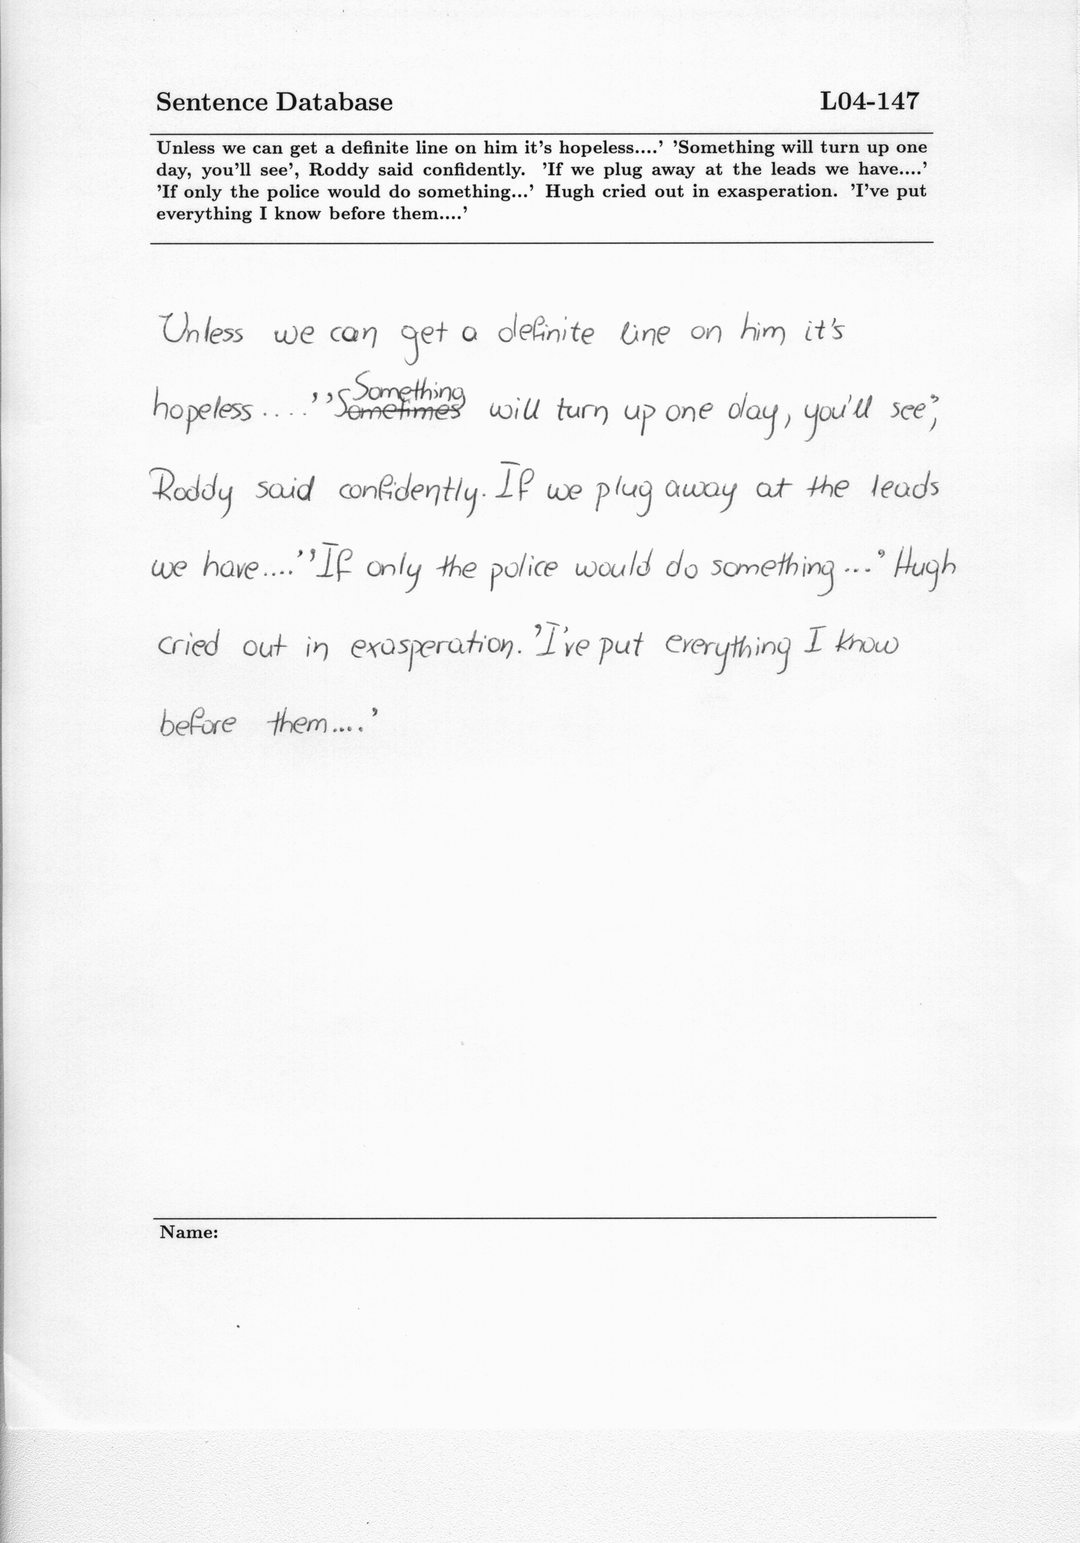 Sentence Database L04-147
Unless we can get a definite line on him it's hopeless....' 'Something will turn up one
day, you'll see', Roddy said confidently. 'If we plug away at the leads we have....'
'If only the police would do something...' Hugh cried out in exasperation. 'I've put
everything I know before them....'
Unless we can get a definite line on him it's
Something
hopeless....' 'Sometimes will turn up one day, you'll see',
Roddy said confidently. If we plug away at the leads
we have....' 'If only the police would do something...' Hugh
cried out in exasperation. 'I've put everything I know
before them....'
Name: